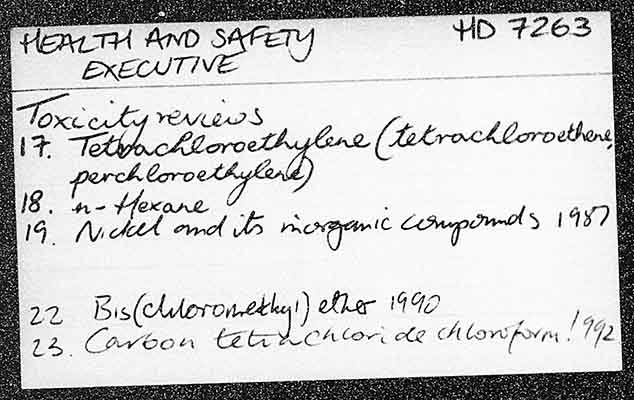 HEALTH AND SAFETY HD 7263
EXECUTIVE
Toxicity reviews
17. Tetrachloroethylene (tetrachloroethene,
perchloroethylene)
18. n-Hexane
19. Nickel and its inorganic compounds 1987
22 Bis(chloromethyl) ether 1990
23. Carbon tetrachloride chloroform! 1992